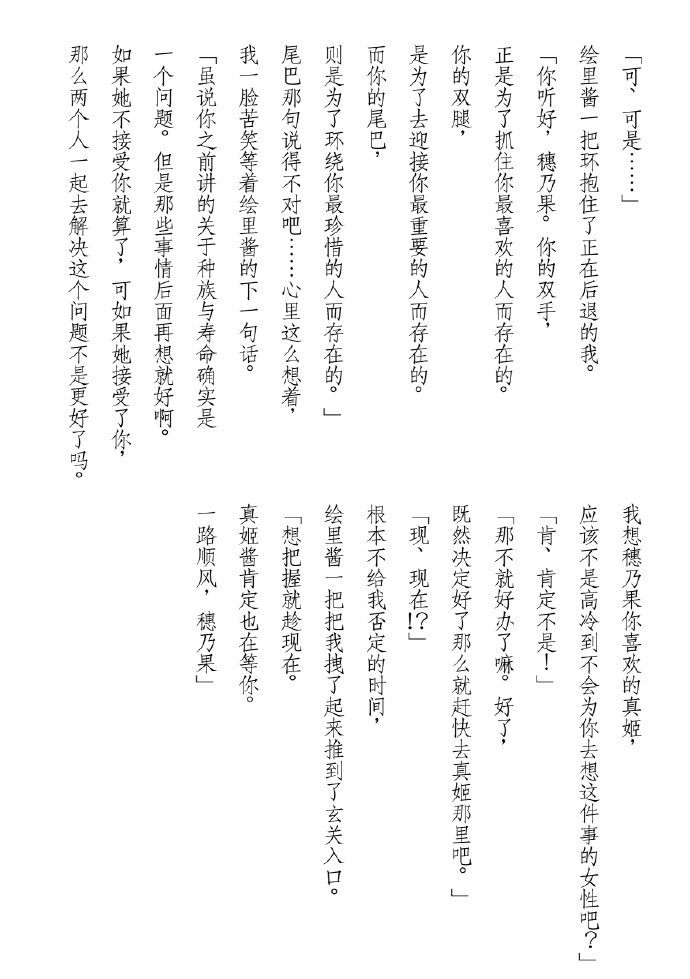 「可、可是……」
绘里酱一把环抱住了正在后退的我。
「你听好，穗乃果。你的双手，
正是为了抓住你最喜欢的人而存在的。
你的双腿，
是为了去迎接你最重要的人而存在的。
而你的尾巴，
则是为了环绕你最珍惜的人而存在的。」
尾巴那句说得不对吧……心里这么想着，
我一脸苦笑等着绘里酱的下一句话。
「虽说你之前讲的关于种族与寿命确实是
一个问题。但是那些事情后面再想就好啊。
如果她不接受你就算了，可如果她接受了你，
那么两个人一起去解决这个问题不是更好了吗。
我想穗乃果你喜欢的真姬，
应该不是高冷到不会为你去想这件事的女性吧？」
「肯、肯定不是！」
「那不就好办了嘛。好了，
既然决定好了那么就赶快去真姬那里吧。」
「现、现在!？」
根本不给我否定的时间，
绘里酱一把把我拽了起来推到了玄关入口。
「想把握就趁现在。
真姬酱肯定也在等你。
一路顺风，穗乃果」